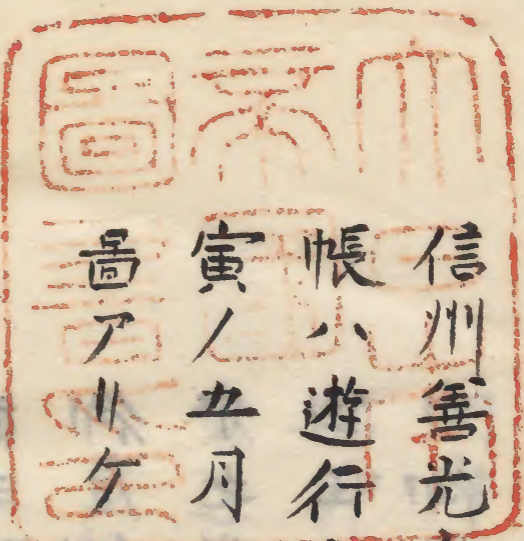 信州善光
帳ハ遊行
寅ノ五月
圖アリケ